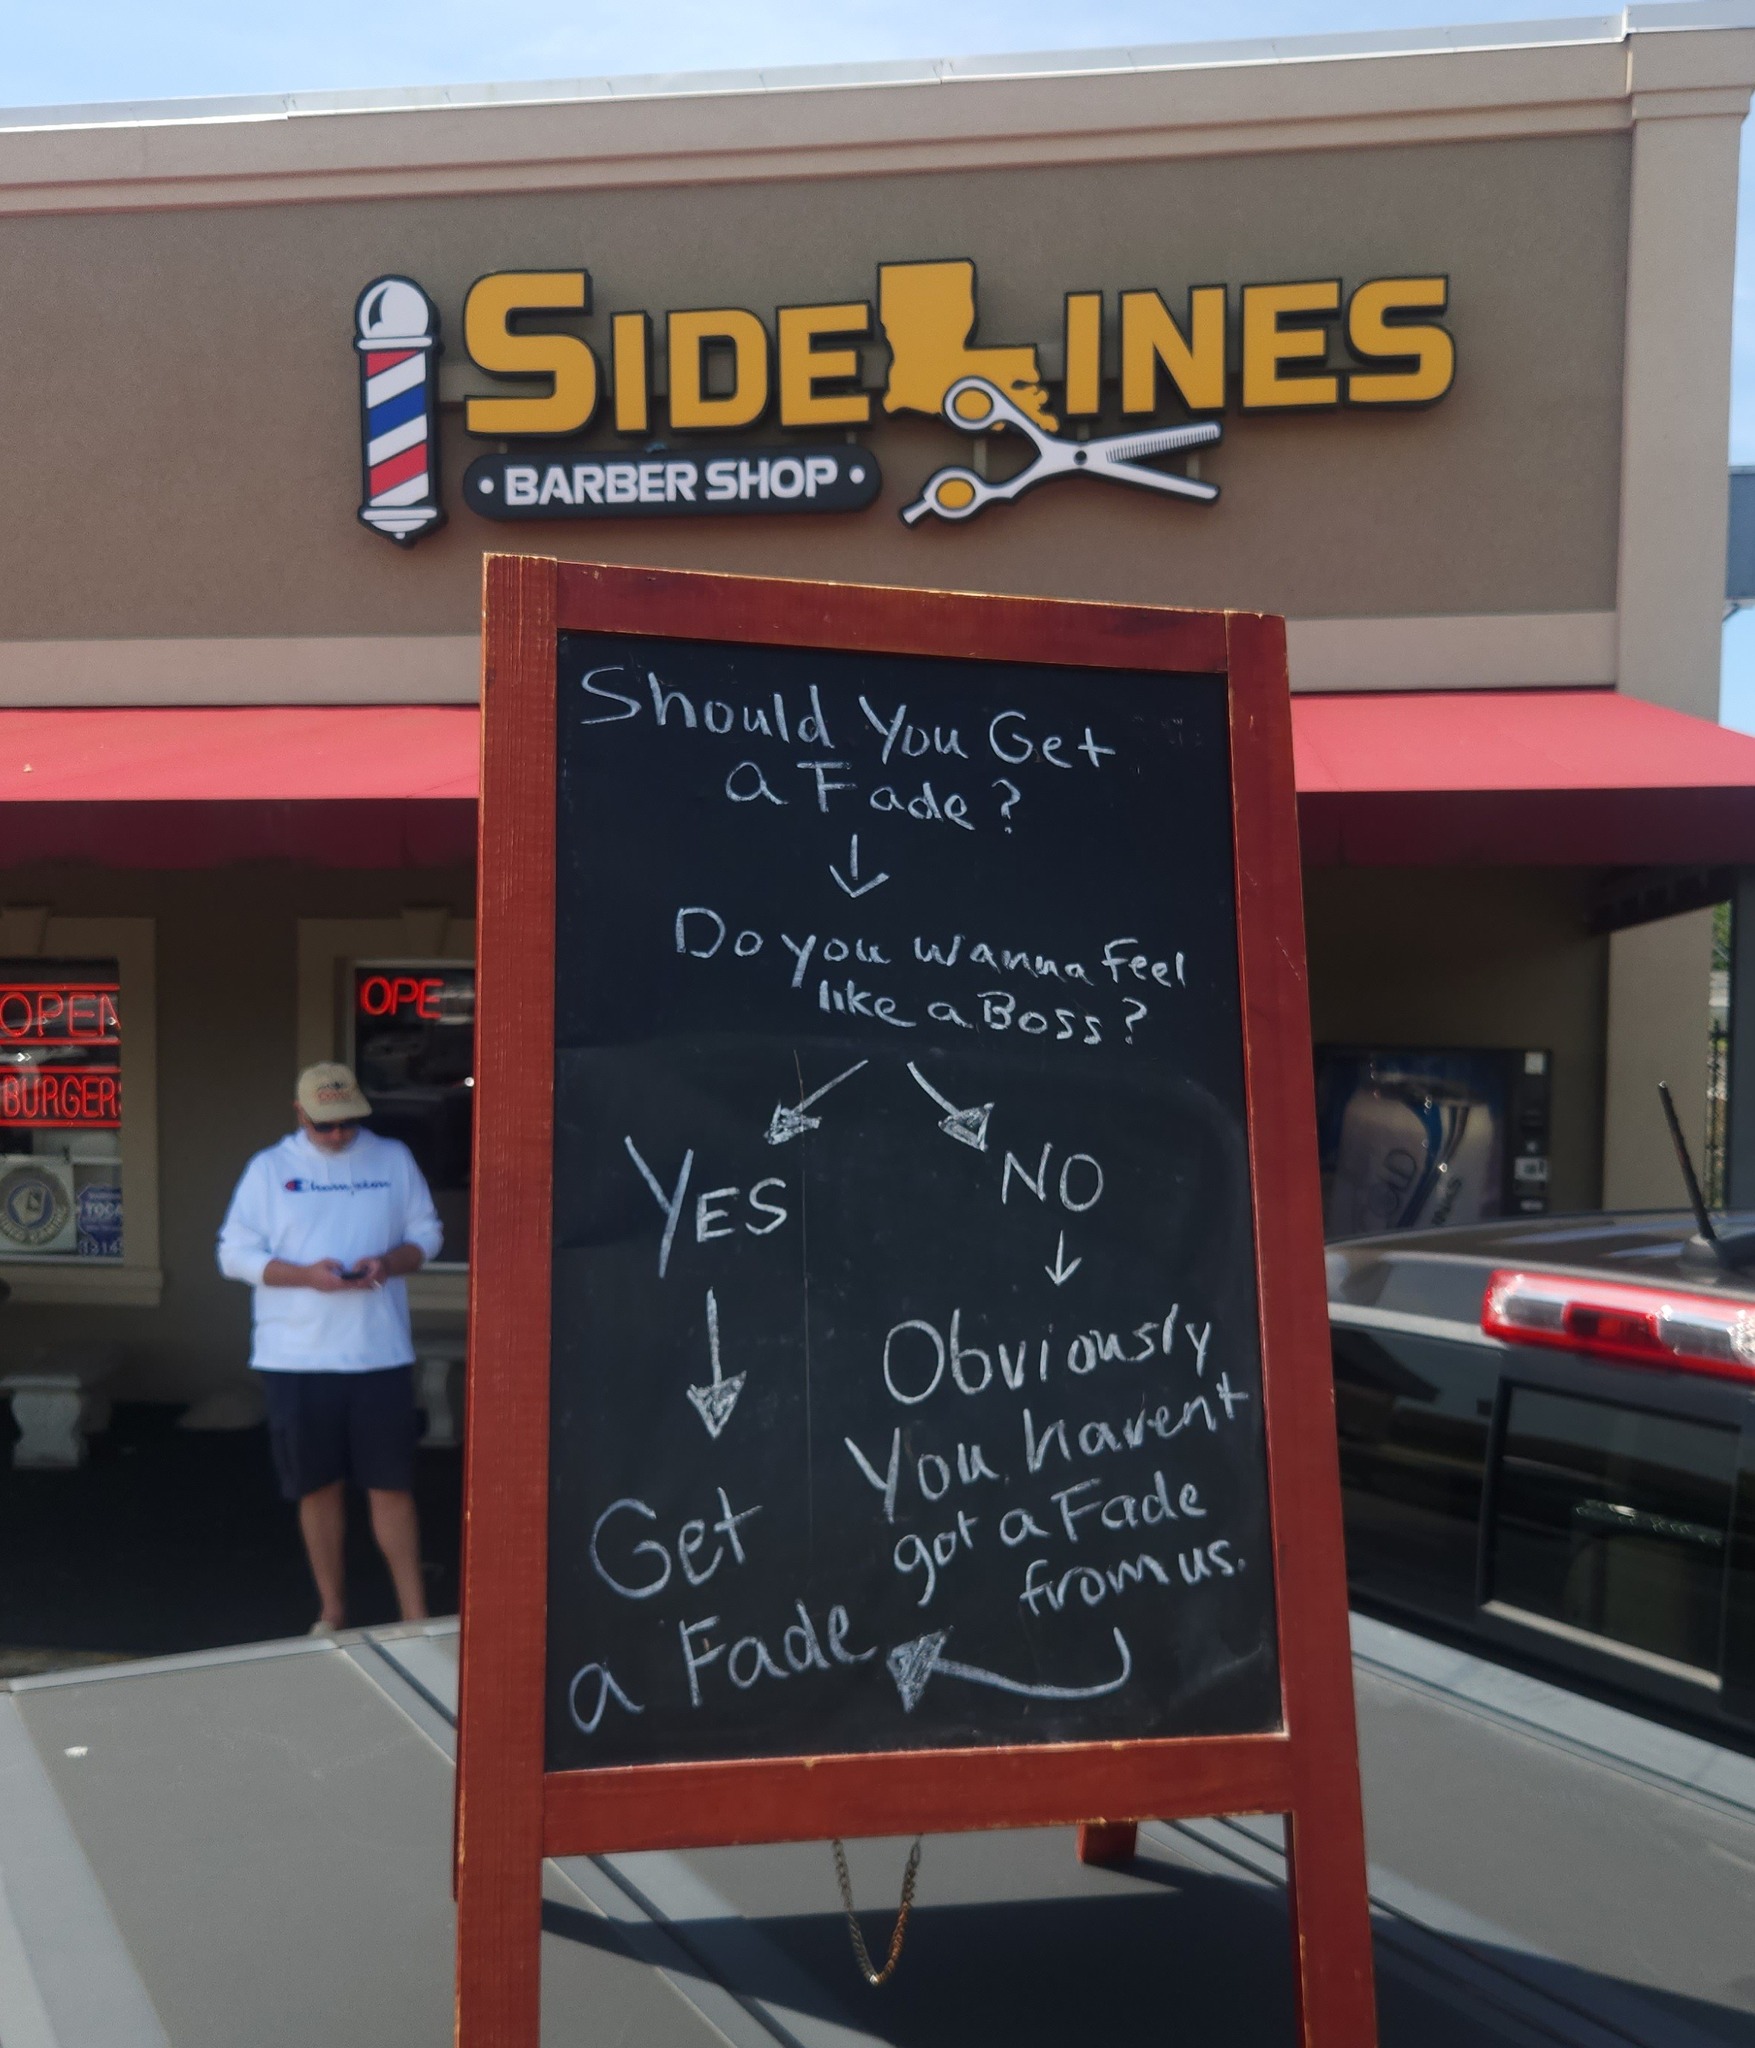 SIDELINES
• BARBER SHOP •
Should You Get
a Fade?
Do you wanna feel
like a Boss?
YES
NO
Obviously
You haven't
got a Fade
from us.
Get
a Fade
OPEN
BURGER
OPE
Champion